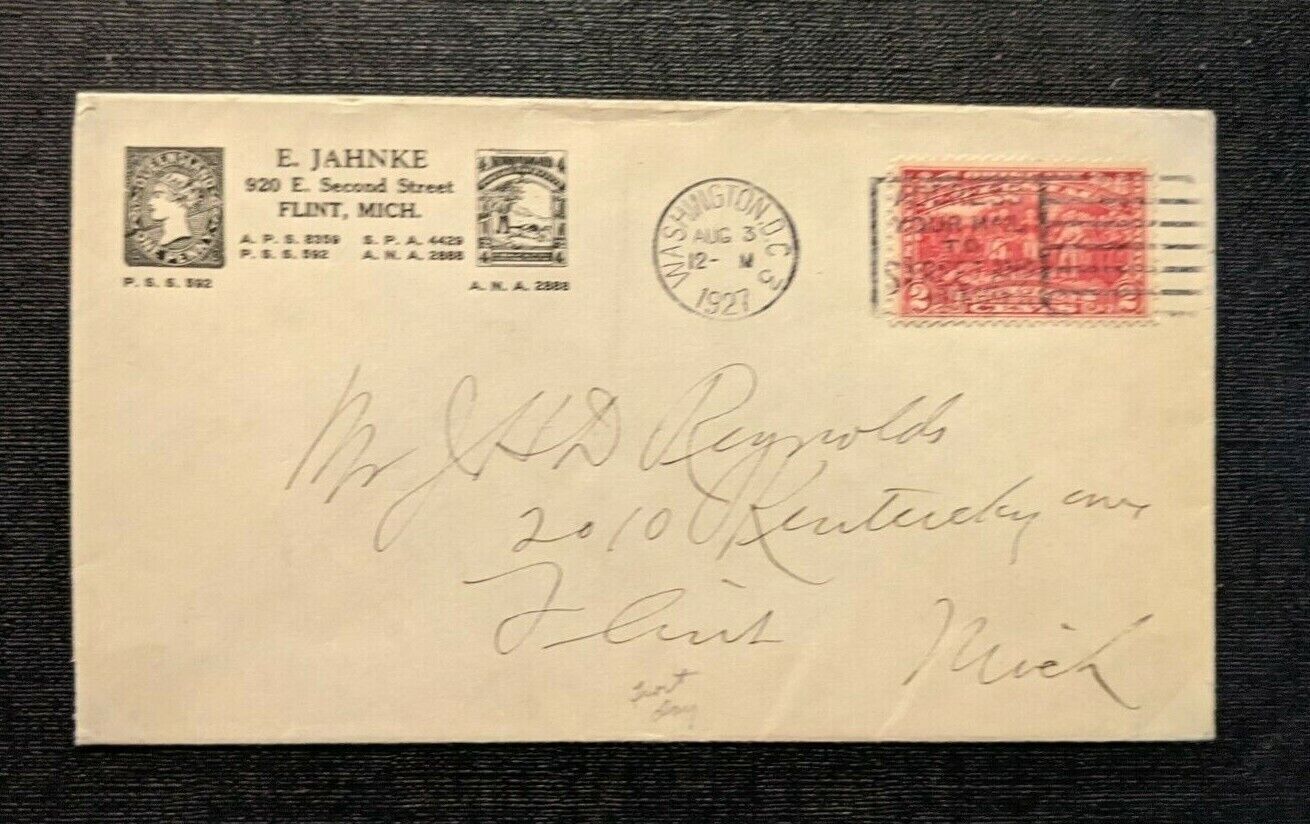 E. JAHNKE
920 E. Second Street
FLINT, MICH.
A. P. S. 8359 S. P. A. 4429
P. S. S. 592 A. N. A. 2888
P. S. S. 592
4 4
4 4
A. N. A. 2888
WASHINGTON, D.C. 3
AUG 3
12- M
1927
YOUR MAIL
TO
2 CENTS 2
Mr J H D Reynolds
2010 Kentucky ave
Flint Mich
First
Day